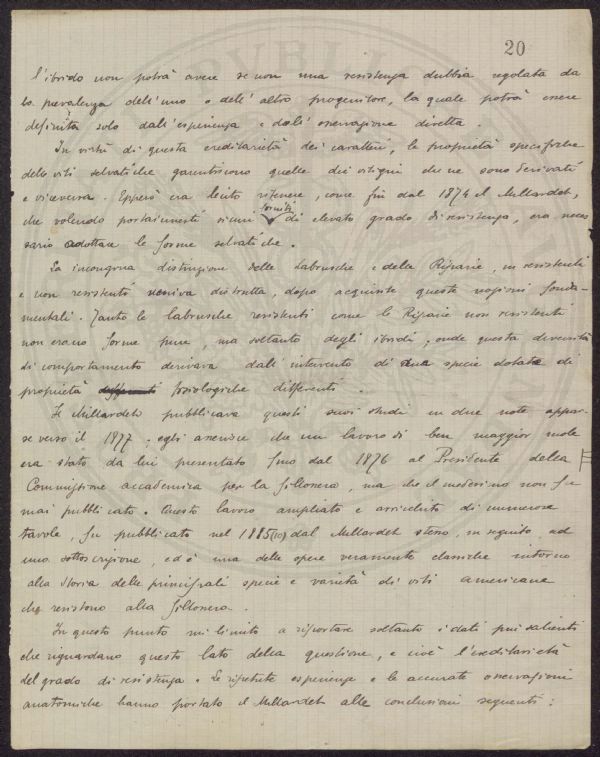 20
l'ibrido non potrà avere se non una resistenza dubbia regolata da
la prevalenza dell'uno o dell'altro progenitore, la quale potrà essere
definita solo dall'esperienza e dall'osservazione diretta.
In virtù di questa ereditarietà dei caratteri, le proprietà specifiche
delle viti selvatiche garantiscono quelle dei vitigni che ne sono derivati
e viceversa. Epperò era lecito ritenere, come fin dal 1874 il Millardet,
che volendo portainnesti sicuri forniti di elevato grado di resistenza, era neces
sario adottare le forme selvatiche.
La incongrua distinzione delle Labrusche e delle Riparie, in resistenti
e non resistenti veniva distrutta, dopo acquisite queste nozioni fonda-
mentali. Tanto le Labrusche resistenti come le Riparie non resistenti
non erano forme pure, ma soltanto degli ibridi, onde questa diversità
di comportamento derivava dall'intervento di una specie dotata di
proprietà differenti fisiologiche differenti.
Il Millardet pubblicava questi suoi studi in due note appar-
se verso il 1877. egli asserisce che un lavoro di ben maggior mole
era stato da lui presentato fino dal 1876 al Presidente della
Commissione accademica per la fillossera, ma che il medesimo non fu
mai pubblicato. Questo lavoro ampliato e arricchito di numerose
tavole, fu pubblicato nel 1885 (10) dal Millardet stesso, in seguito ad
una sottoscrizione, ed è una delle opere veramente classiche intorno
alla storia delle principali specie e varietà di viti americane
che resistono alla fillossera.
In questo punto mi limito a riportare soltanto i dati più salienti
che riguardano questo lato della questione, e cioè l'ereditarietà
del grado di resistenza. Le ripetute esperienze e le accurate osservazioni
anatomiche hanno portato il Millardet alle conclusioni seguenti: